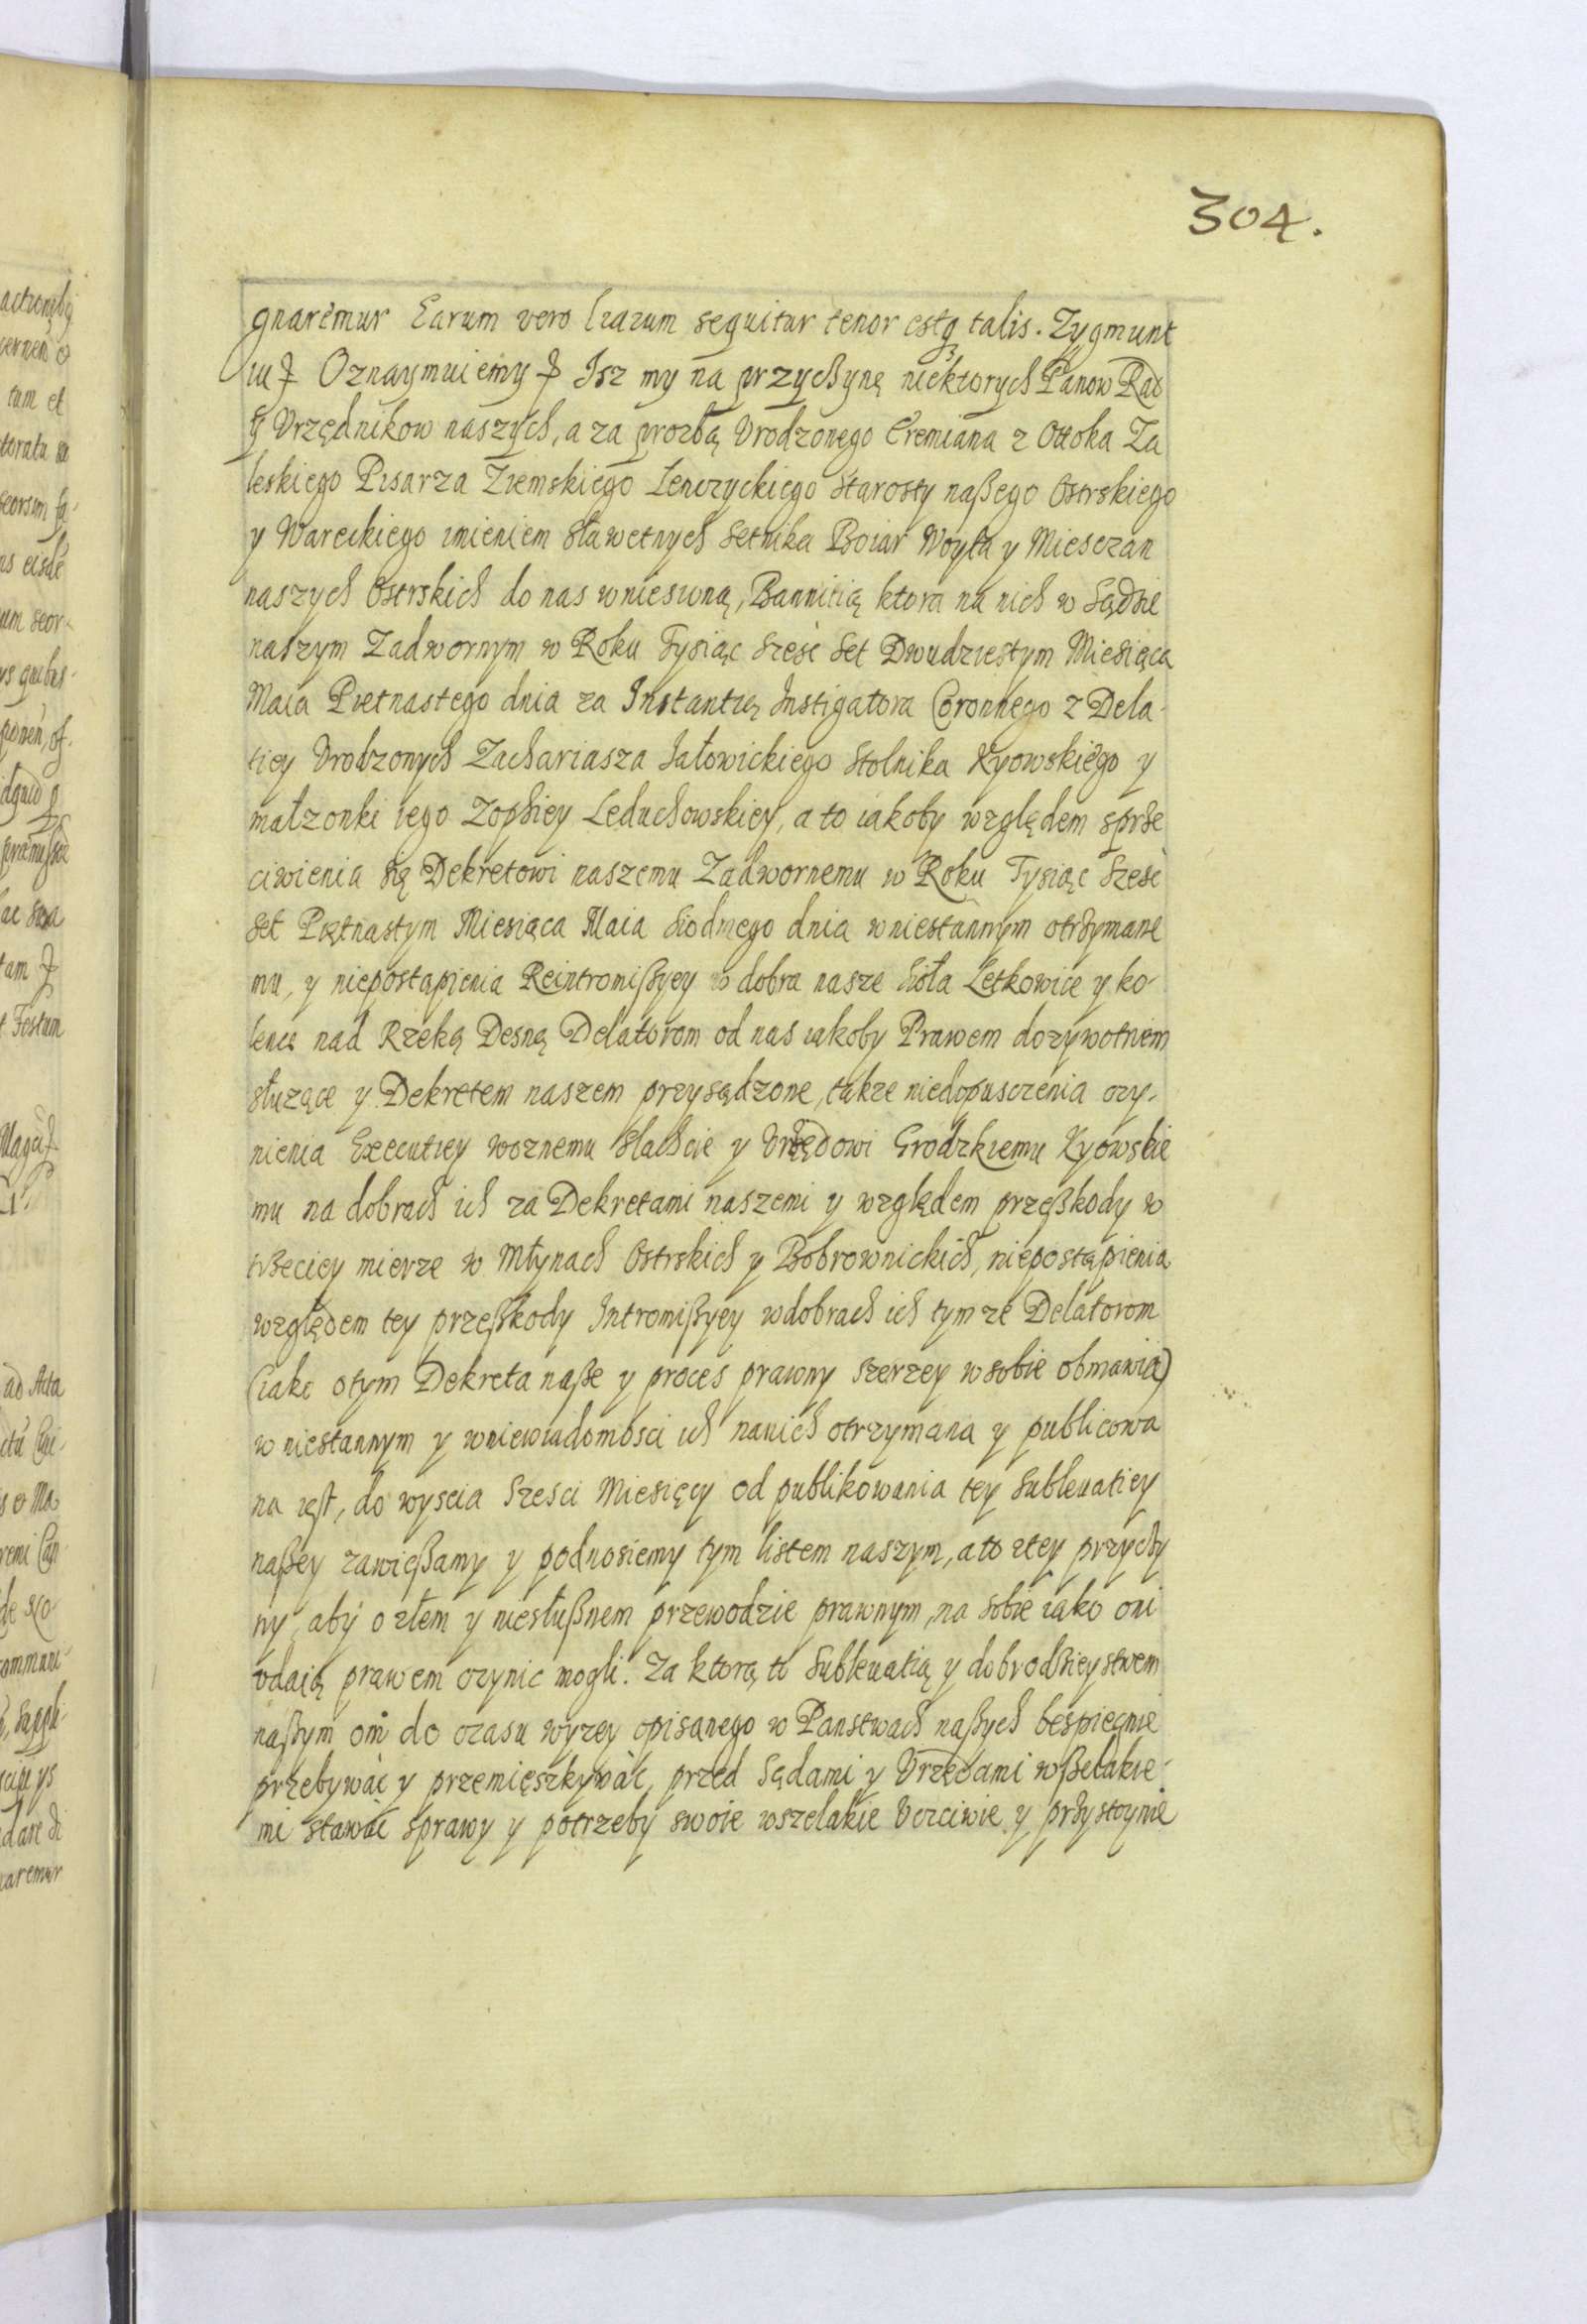 304.
gnaremur Earum vero lrarum sequitur tenor estq talis. Zygmunt
III Oznaymuiemy Isz my na przyczynę niektorych Panow Rad
y Vrzędnikow naszych, a za prozbą Vrodzonego Eremiana z Ottoka Za
leskiego Pisarza Ziemskiego Łenczyckiego Starosty naßego Ostrskiego
y Wareckiego imieniem Sławetnych Setnika Boiar Woyta y Miesczan
naszych Ostrskich do nas wniesioną, Bannitią ktora na nich w Sądzie
naszym Zadwornym w Roku Tysiąc Szesc Set Dwudziestym Miesiąca
Maia Pietnastego dnia za Instantią Instigatora Coronnego z Dela-
tiey Vrodzonych Zachariasza Jałowickiego Stolnika Kyowskiego y
małzonki iego Zophiey Leduchowskiey, a to iakoby względem sprze
ciwienia się Dekretowi naszemu Zadwornemu w Roku Tysiąc Szesc
Set Piętnastym Miesiąca Maia Siodmego dnia wniestannym otrzymane
mu, y niepostąpienia Reintromißyey w dobra nasze Sioła Letkowice y ko-
lence nad Rzeką Desną Delatorom od nas iakoby Prawem dozywotniem
słuzące y Dekretem naszem przysądzone, takze niedopusczenia czy-
nienia Executiey woznemu Slachcie y Vrzędowi Grodzkiemu Kyowskie
mu na dobrach ich za Dekretami naszemi y względem przeßkody w
trzeciey mierze w Młynach Ostrskich y Bobrownickich, niepostąpienia
względem tey przeßkody Intromißyey wdobrach ich tym ze Delatorom
(iako otym Dekreta naße y proces prawny szerzey wsobie obmawia)
w niestannym y wniewiadomosci ich nanich otrzymana y publicowa
na iest, do wyscia Szesci Miesięcy od publikowania tey Subleuatiey
naßey zawießamy y podnosiemy tym listem naszym, a to ztey przyczy
ny, aby o złem y niesłußnem przewodzie prawnym, na sobie iako oni
vdaią prawem czynic mogli. Za ktorą to Subleuatią y dobrodzieystwem
naßym oni do czasu wyzey opisanego w Panstwach naßych bespiecznie
przebywać y przemięszkywać, przed Sądami y Vrzędami wßelakie-
mi stawać sprawy y potrzeby swoie wszelakie Vczciwie y przystoynie